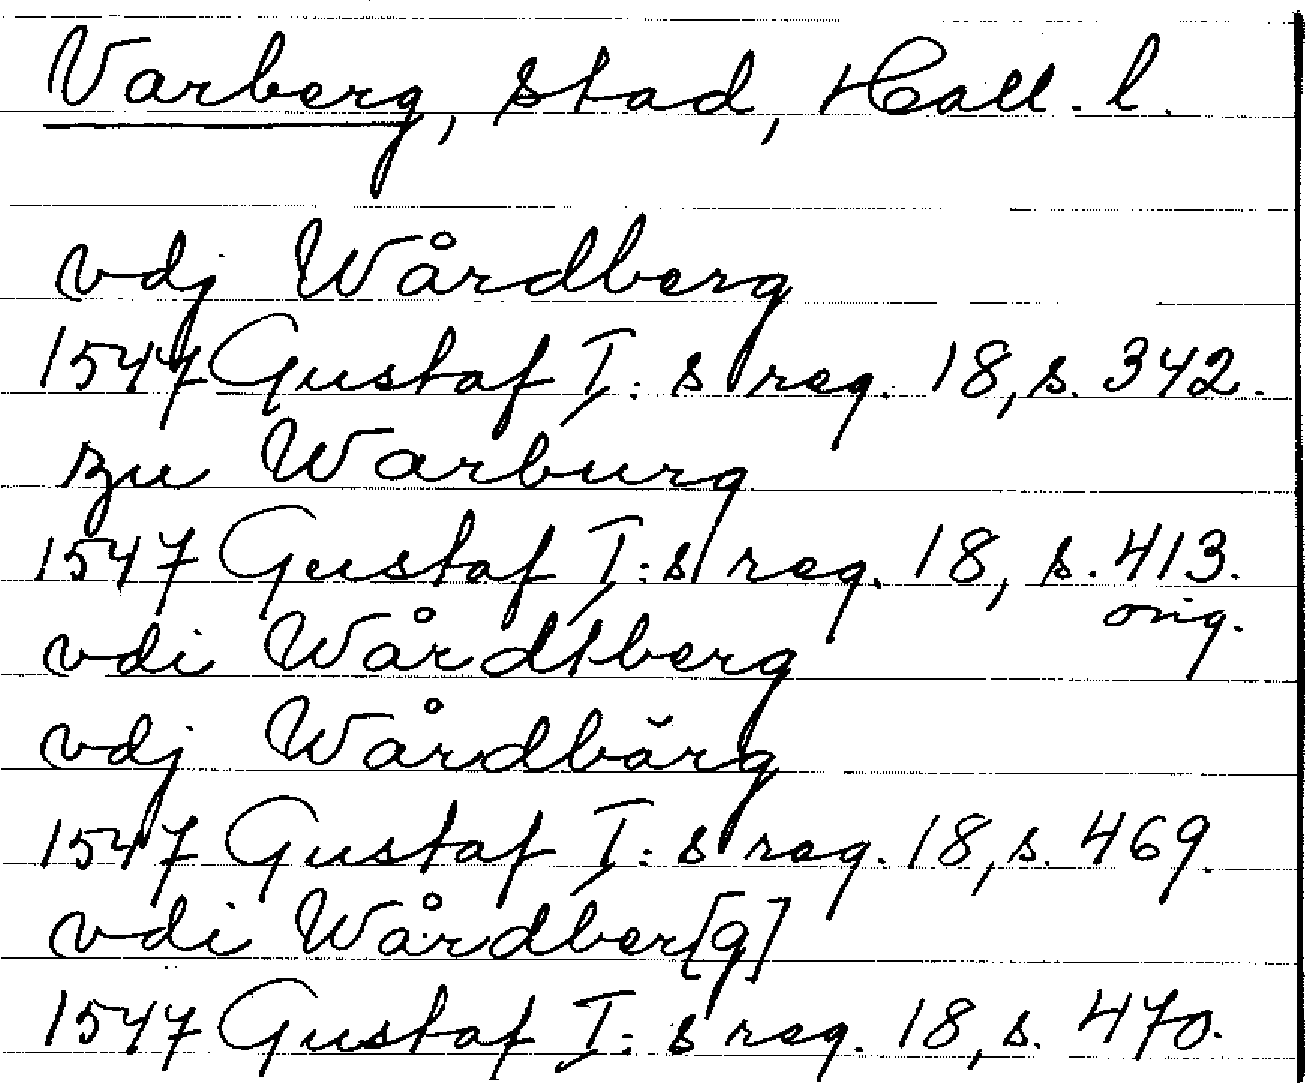 Varberg, stad, Hall. l.
vdj Wårdberg
1547 Gustaf I:s reg. 18, s. 342.
zu Warburg
1547 Gustaf I:s reg. 18, s. 413.
orig.
vdi Wårdtberg
vdj Wårdbärg
1547 Gustaf I:s reg. 18, s. 469.
vdi Wårdber[g]
1547 Gustaf I:s reg. 18, s. 470.